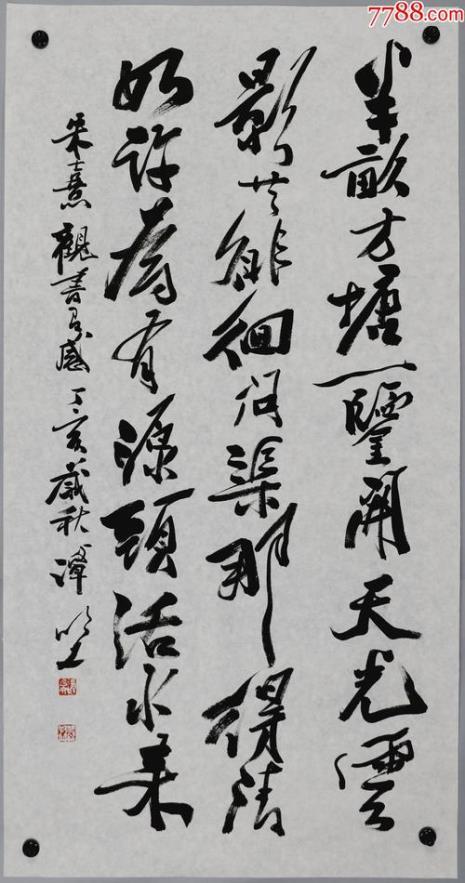 7788.com
半畝方塘一鑒開天光雲
影共徘徊问渠那得清
如許為有源頭活水来
朱熹觀書有感丁亥歲秋